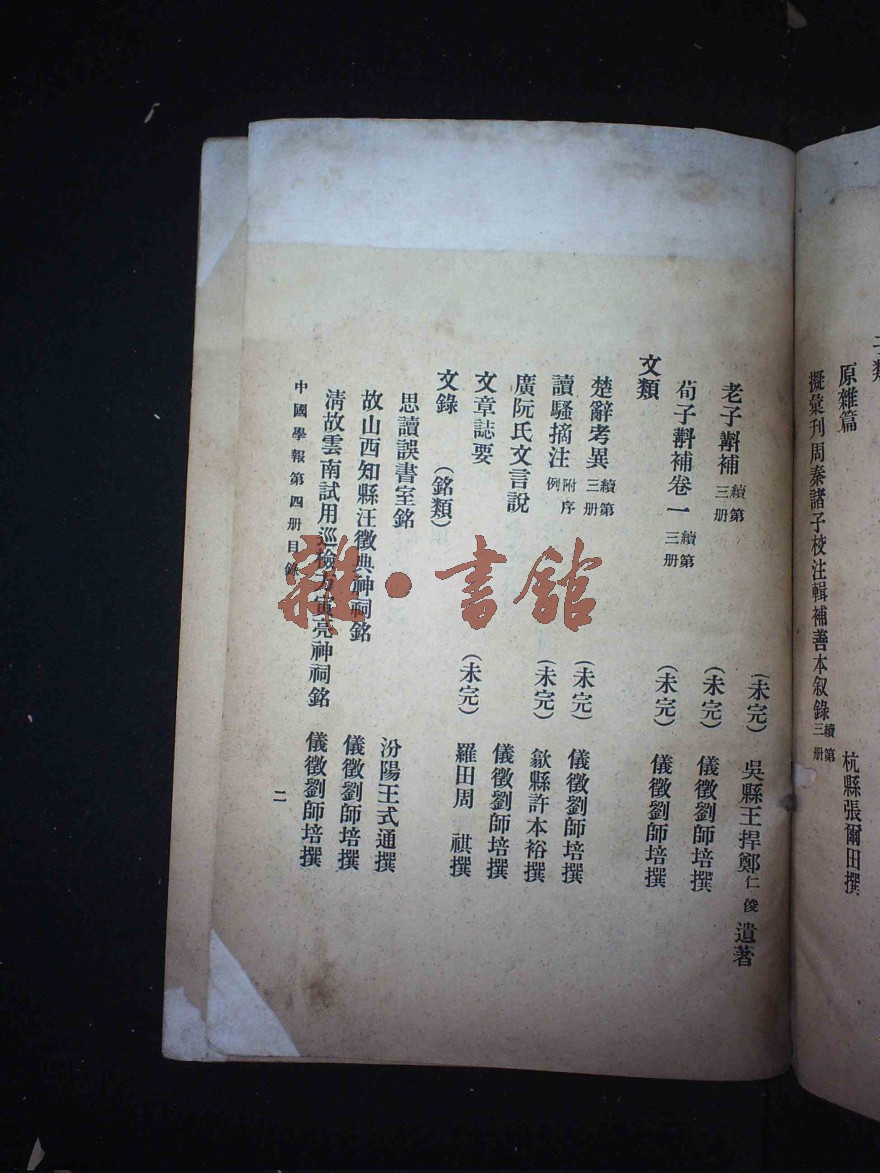 子類
原雜篇 杭縣張爾田撰
擬彙刊周秦諸子校注輯補善本叙錄 續第三册
(未完) 吳縣王捍鄭仁俊遺著
老子斠補 續第三册 (未完) 儀徵劉師培撰
荀子斠補卷一 續第三册 (未完) 儀徵劉師培撰
文類
楚辭考異 續第三册 (未完) 儀徵劉師培撰
讀騷摘注 附序例 (未完) 歙縣許本裕撰
廣阮氏文言說 儀徵劉師培撰
文章誌要 (未完) 羅田周祺撰
文錄 (銘類)
思讀誤書室銘 汾陽王式通撰
故山西知縣汪徵典神祠銘 儀徵劉師培撰
清故雲南試用巡檢方寅亮神祠銘 儀徵劉師培撰
中國學報第四册目錄 二
雜·書館